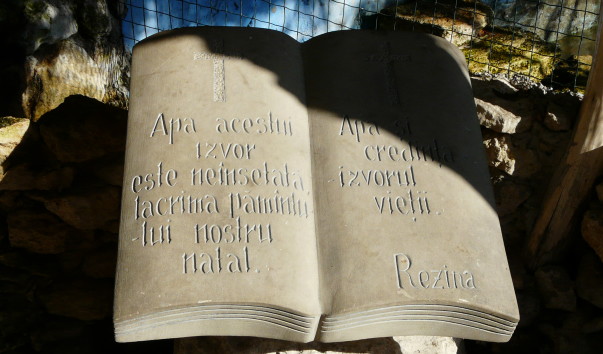 Apa acestui
izvor
este neinsetata
lacrima pamintu-
-lui nostru
natal.
Apa și
credința
izvorul
vieții.
Rezina